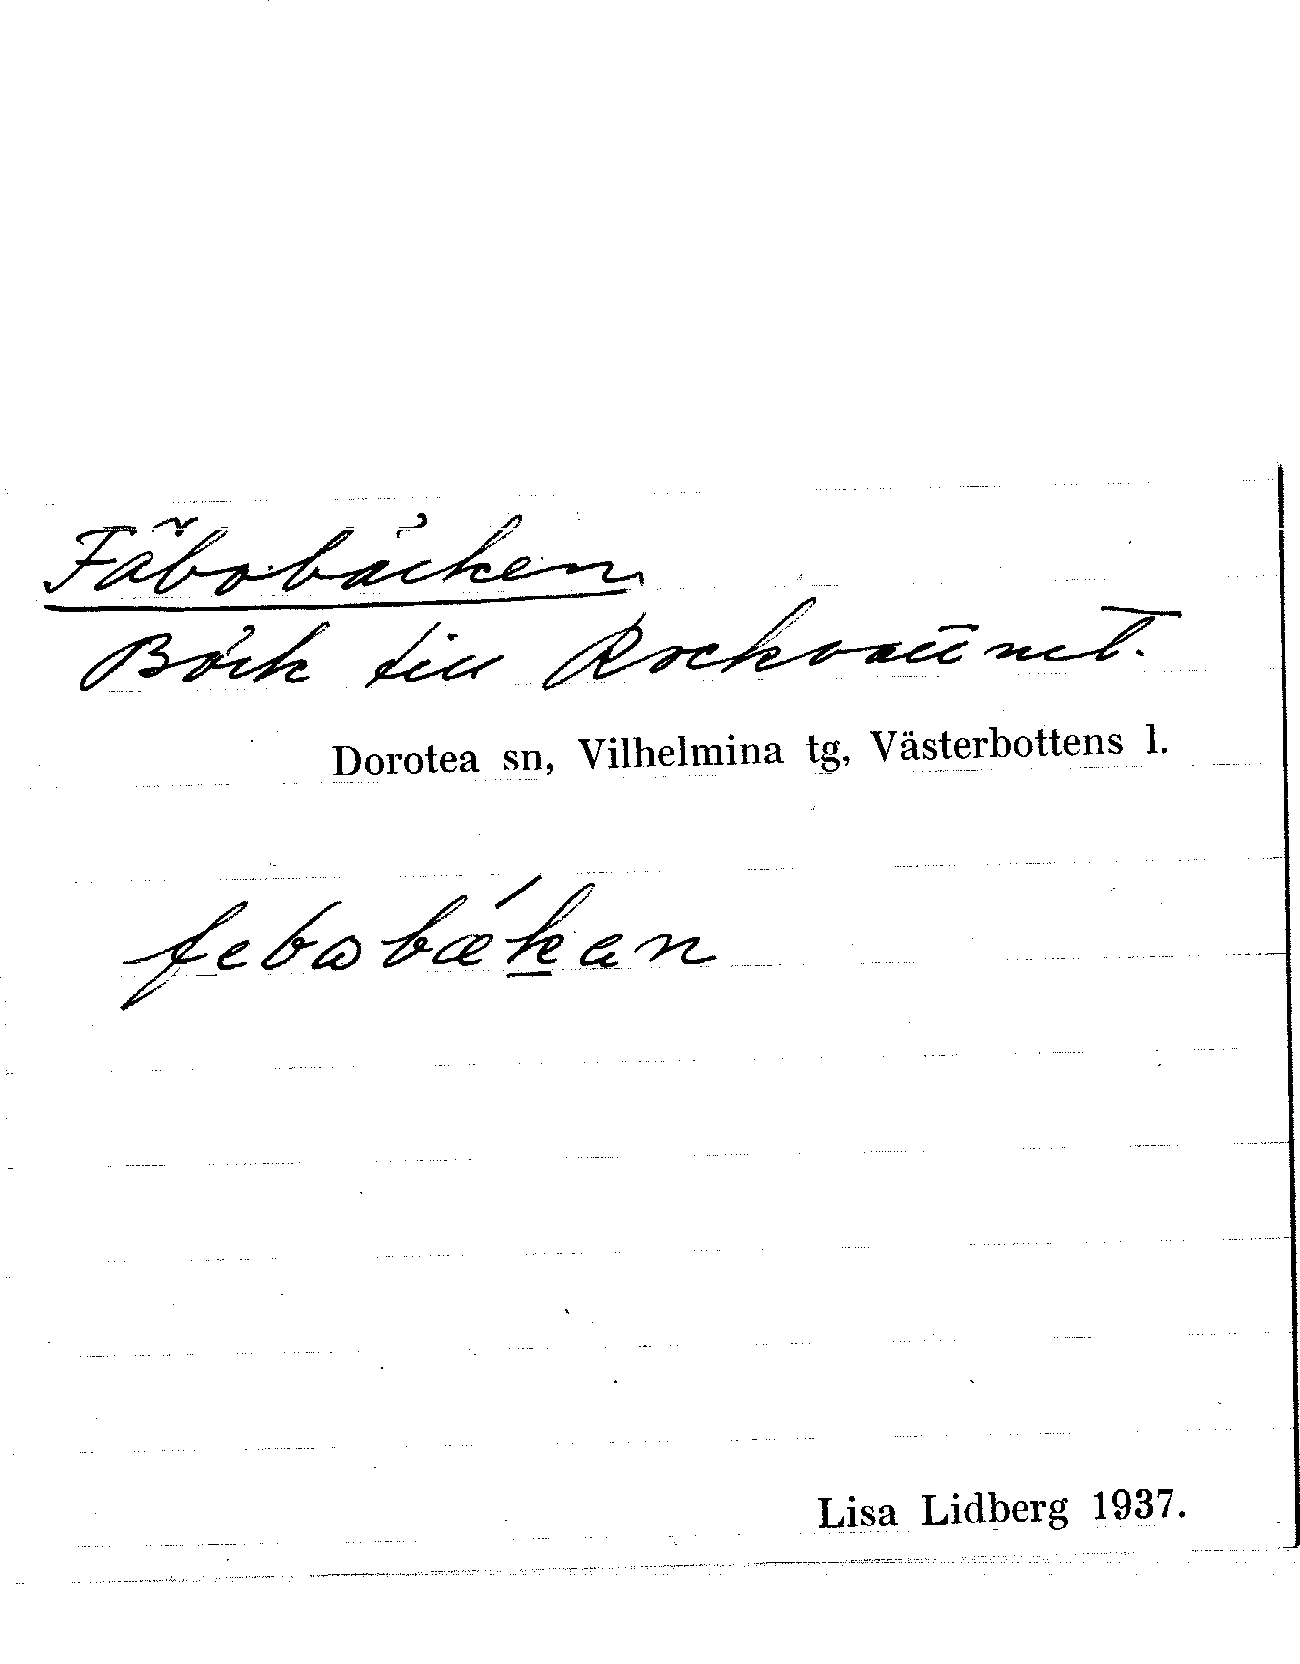 Fäbobäcken
Bäck till Rockvattnet.
Dorotea sn, Vilhelmina tg, Västerbottens l.
febωbækan
Lisa Lidberg 1937.